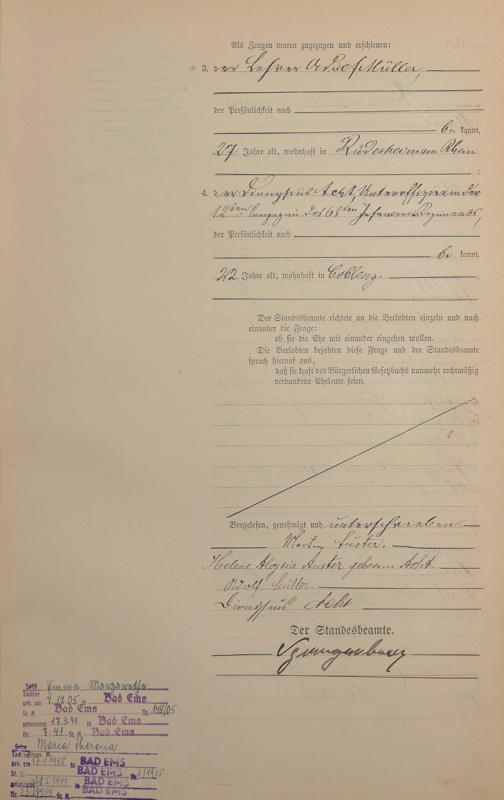 Als Zeugen waren zugezogen und erschienen:
3. der Lehrer Adolf Müller,
der Persönlichkeit nach
be kannt,
27 Jahre alt, wohnhaft in Rüdesheim am Rhein
;
4. der Dionysius Acht, Unteroffizier in der
12ten Compagnie des 68ten Infanterie Regiments,
der Persönlichkeit nach
be kannt,
22 Jahre alt, wohnhaft in Coblenz.
Der Standesbeamte richtete an die Verlobten einzeln und nach
einander die Frage:
ob sie die Ehe mit einander eingehen wollen.
Die Verlobten bejahten diese Frage und der Standesbeamte
sprach hierauf aus,
daß sie kraft des Bürgerlichen Gesetzbuchs nunmehr rechtmäßig
verbundene Eheleute seien.
Vorgelesen, genehmigt und unterschrieben
Martin Auster.
Helene Aloysia Auster geborene Acht.
Adolf Müller.
Dionysius Acht
Der Standesbeamte.
Spangenberg
Sohn Emma Margarethe
Tochter
geb. am 7.12.05 in Bad Ems
St. A. Bad Ems Nr. 198/05
geheiratet 17.3.41 in Bad Ems
Nr. 7.41 St. A. Bad Ems
Sohn Maria Theresia
Tochter
geb. am 17.1.1915 in BAD EMS
St. A. BAD EMS Nr. /1915
geheiratet 1949 in BAD EMS
Nr. /1949 St. A. BAD EMS